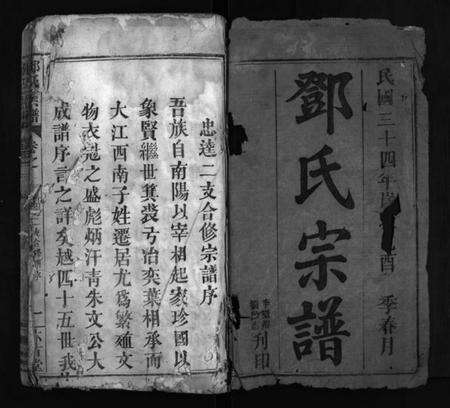 民國三十四年歲
酉
季春月
鄧氏宗譜
刊印
忠逵二支合修宗譜序
吾族自南陽以宰相起家珍國以
象賢繼世箕裘弓冶奕葉相承而
大江西南子姓遷居尤為繁殖文
物衣冠之盛彪炳汗青朱文公大
成譜序言之詳矣越四十五世我